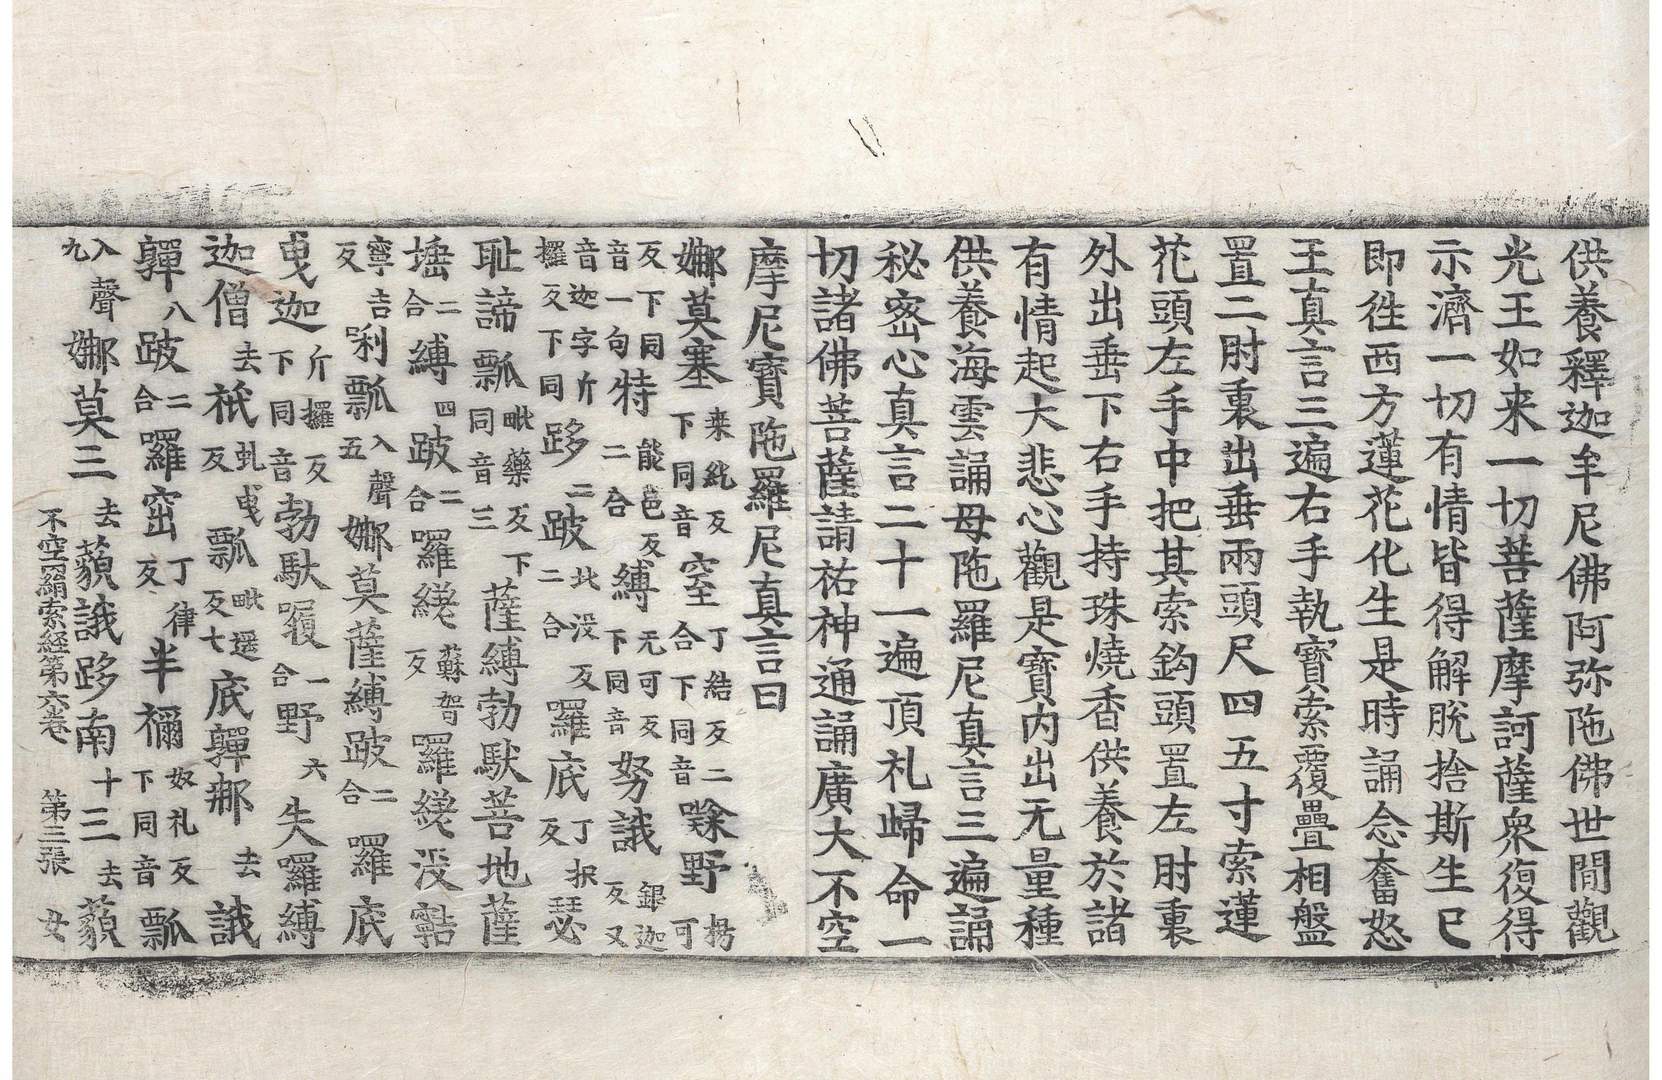 供養釋迦牟尼佛阿弥陁佛世間觀
光王如来一切菩薩摩訶薩衆復得
示濟一切有情皆得解脫捨斯生已
即徃西方蓮花化生是時誦念奮怒
王真言三遍右手執寶索覆疊相盤
置二肘裏出垂兩頭尺四五寸索蓮
花頭左手中把其索鈎頭置左肘裏
外出垂下右手持珠燒香供養於諸
有情起大悲心觀是寶內出无量種
供養海雲誦母陁羅尼真言三遍誦
秘密心真言二十一遍頂礼歸命一
切諸佛菩薩請祐神通誦廣大不空
摩尼寶陁羅尼真言曰
娜莫塞桒紇反下同音窒丁結反二合下同音㗚野楊可
反下同音一句特能邑反二合縛无可反下同音努誐銀迦反又
音迦字斤攞反下同跢二跛北没反二合囉底丁択反瑟
耻諦瓢毗藥反下同音三薩縛勃馱菩地薩
埵二合縛四跛二合囉縒蘇哿反囉縒没䩭
寧吉反唎瓢入聲五娜莫薩縛跛二合囉底
曳迦斤攞反下同音勃馱𡃤一合野六失囉縛
迦僧去祇虬曳反瓢毗遥反七底嚲那去誐
嚲八跛二合囉窋丁律反半禰奴礼反下同音瓢
入聲九娜莫三去藐誐跢南十三去藐
不空羂索経第六卷　第三張　女